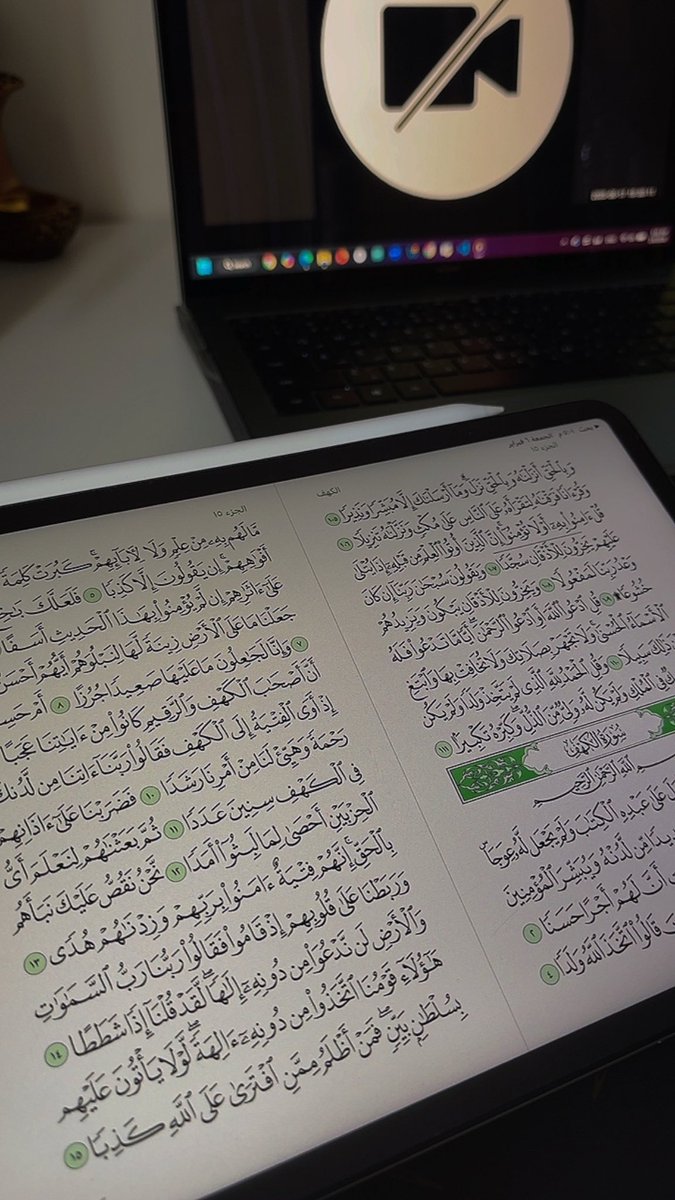 بحث الجمعة ٦ فبراير
الجزء ١٥
وَبِٱلْحَقِّ أَنزَلْنَٰهُ وَبِٱلْحَقِّ نَزَلَ وَمَآ أَرْسَلْنَٰكَ إِلَّا مُبَشِّرًا وَنَذِيرًا ١٠٥
وَقُرْءَانًا فَرَقْنَٰهُ لِتَقْرَأَهُۥ عَلَى ٱلنَّاسِ عَلَىٰ مُكْثٍ وَنَزَّلْنَٰهُ تَنزِيلًا ١٠٦
قُلْ ءَامِنُوا۟ بِهِۦٓ أَوْ لَا تُؤْمِنُوٓا۟ إِنَّ ٱلَّذِينَ أُوتُوا۟ ٱلْعِلْمَ مِن قَبْلِهِۦٓ إِذَا يُتْلَىٰ
عَلَيْهِمْ يَخِرُّونَ لِلْأَذْقَانِ سُجَّدًا ١٠٧ وَيَقُولُونَ سُبْحَٰنَ رَبِّنَآ إِن كَانَ
وَعْدُ رَبِّنَا لَمَفْعُولًا ١٠٨ وَيَخِرُّونَ لِلْأَذْقَانِ يَبْكُونَ وَيَزِيدُهُمْ
خُشُوعًا ١٠٩ قُلِ ٱدْعُوا۟ ٱللَّهَ أَوِ ٱدْعُوا۟ ٱلرَّحْمَٰنَ أَيًّا مَّا تَدْعُوا۟ فَلَهُ
ٱلْأَسْمَآءُ ٱلْحُسْنَىٰ وَلَا تَجْهَرْ بِصَلَاتِكَ وَلَا تُخَافِتْ بِهَا وَٱبْتَغِ
ذَٰلِكَ سَبِيلًا ١١٠ وَقُلِ ٱلْحَمْدُ لِلَّهِ ٱلَّذِى لَمْ يَتَّخِذْ وَلَدًا وَلَمْ يَكُن
فِى ٱلْمُلْكِ وَلَمْ يَكُن لَّهُۥ وَلِىٌّ مِّنَ ٱلذُّلِّ وَكَبِّرْهُ تَكْبِيرًۢا ١١١
سُورَةُ الكَهْفِ
ٱللَّهِ ٱلرَّحْمَٰنِ ٱلرَّحِيمِ
عَلَىٰ عَبْدِهِ ٱلْكِتَٰبَ وَلَمْ يَجْعَل لَّهُۥ عِوَجَا
مِّن لَّدُنْهُ وَيُبَشِّرَ ٱلْمُؤْمِنِينَ
أَنَّ لَهُمْ أَجْرًا حَسَنًا ٢
قَالُوا۟ ٱتَّخَذَ ٱللَّهُ وَلَدًا ٤
الكهف
الجزء ١٥
مَّا لَهُم بِهِۦ مِنْ عِلْمٍ وَلَا لِءَابَآئِهِمْ كَبُرَتْ كَلِمَةً
أَفْوَٰهِهِمْ إِن يَقُولُونَ إِلَّا كَذِبًا ٥ فَلَعَلَّكَ
عَلَىٰٓ ءَاثَٰرِهِمْ إِن لَّمْ يُؤْمِنُوا۟ بِهَٰذَا ٱلْحَدِيثِ أَسَفًا
جَعَلْنَا مَا عَلَى ٱلْأَرْضِ زِينَةً لَّهَا لِنَبْلُوَهُمْ أَيُّهُمْ أَحْسَنُ
٧ وَإِنَّا لَجَٰعِلُونَ مَا عَلَيْهَا صَعِيدًا جُرُزًا ٨ أَمْ
أَنَّ أَصْحَٰبَ ٱلْكَهْفِ وَٱلرَّقِيمِ كَانُوا۟ مِنْ ءَايَٰتِنَا عَجَبًا
إِذْ أَوَى ٱلْفِتْيَةُ إِلَى ٱلْكَهْفِ فَقَالُوا۟ رَبَّنَآ ءَاتِنَا مِن لَّدُنكَ
رَحْمَةً وَهَيِّئْ لَنَا مِنْ أَمْرِنَا رَشَدًا ١٠ فَضَرَبْنَا عَلَىٰٓ ءَاذَانِهِمْ
فِى ٱلْكَهْفِ سِنِينَ عَدَدًا ١١ ثُمَّ بَعَثْنَٰهُمْ لِنَعْلَمَ أَىُّ
ٱلْحِزْبَيْنِ أَحْصَىٰ لِمَا لَبِثُوٓا۟ أَمَدًا ١٢ نَّحْنُ نَقُصُّ عَلَيْكَ نَبَأَهُم
بِٱلْحَقِّ إِنَّهُمْ فِتْيَةٌ ءَامَنُوا۟ بِرَبِّهِمْ وَزِدْنَٰهُمْ هُدًى ١٣
وَرَبَطْنَا عَلَىٰ قُلُوبِهِمْ إِذْ قَامُوا۟ فَقَالُوا۟ رَبُّنَا رَبُّ ٱلسَّمَٰوَٰتِ
وَٱلْأَرْضِ لَن نَّدْعُوَا۟ مِن دُونِهِۦٓ إِلَٰهًا لَّقَدْ قُلْنَآ إِذًا شَطَطًا ١٤
هَٰٓؤُلَآءِ قَوْمُنَا ٱتَّخَذُوا۟ مِن دُونِهِۦٓ ءَالِهَةً لَّوْلَا يَأْتُونَ عَلَيْهِم
بِسُلْطَٰنٍۭ بَيِّنٍ فَمَنْ أَظْلَمُ مِمَّنِ ٱفْتَرَىٰ عَلَى ٱللَّهِ كَذِبًا ١٥